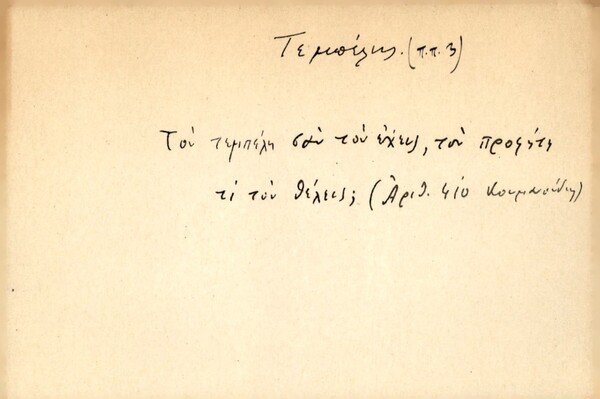 Τεμπέλης. (π.π. 3)
Τὸν τεμπέλη σὰν τὸν ἔχεις, τὸν προφήτη
τί τὸν θέλεις; (Ἀριθ. 410 Κουμανούδης)